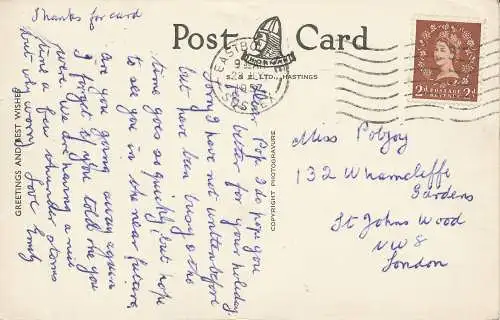 Thanks for card
Post Card
NORMAN
S. & E. LTD., HASTINGS
EASTBO
SUSSEX
POSTAGE
2d 2d
GREETINGS AND BEST WISHES
COPYRIGHT PHOTOGRAVURE
Dear Pop I do hope you
feel better for your holiday.
Sorry I have not written before
but have been busy & the
time goes so quickly, but hope
to see you in the near future
Are you going away again
I forget if you told me you
were. We are having a nice
time a few thunder storms
but why worry Love Emily
Miss Pobjoy
132 Wharncliffe
Gardens
St Johns Wood
NW8
London